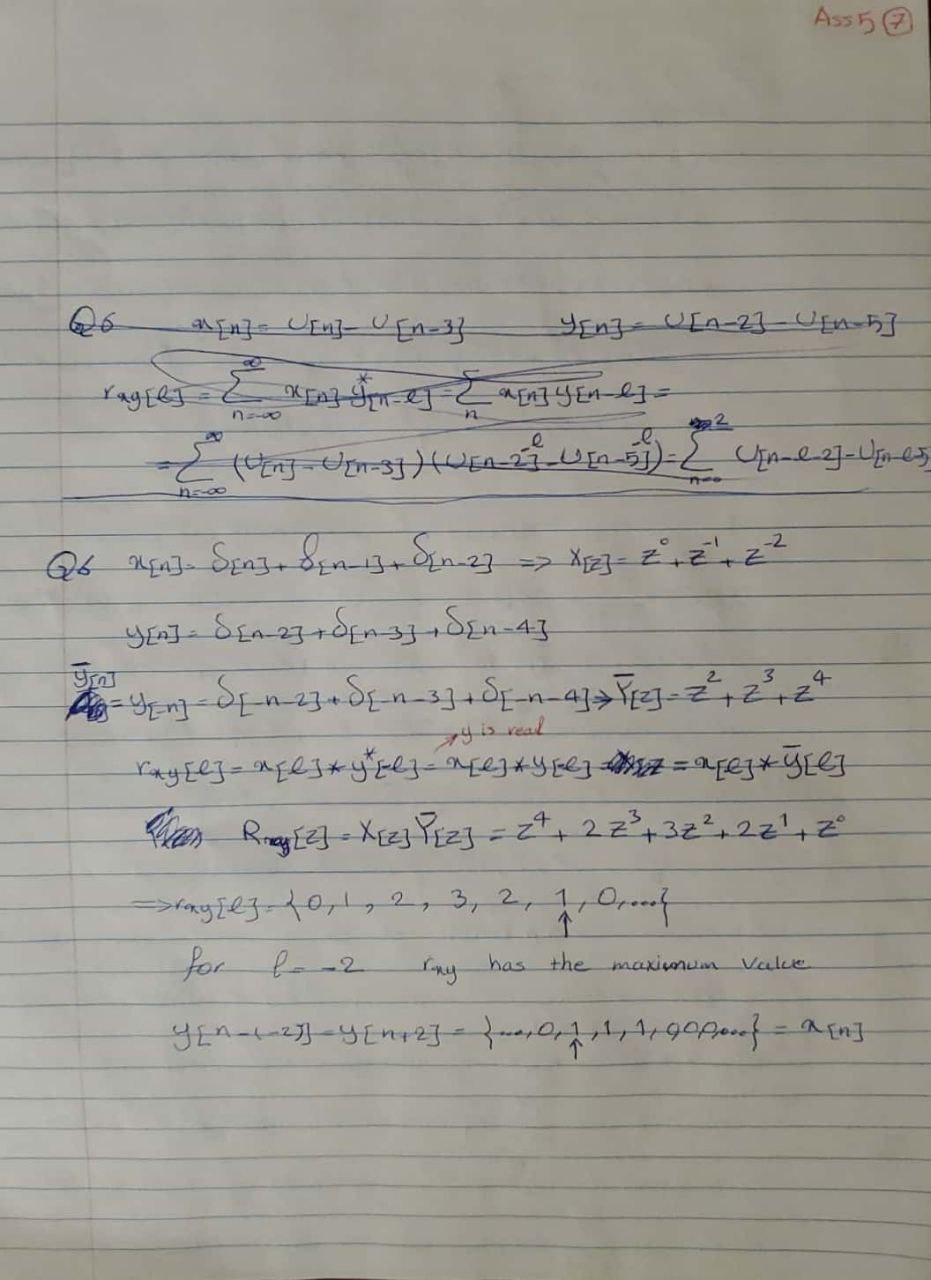 Ass 5 ⑦
Q6 x[n] = U[n] - U[n-3] y[n] = U[n-2] - U[n-5]
rxy[l] = ∑_{n=-∞}^{∞} x[n] y*[n-l] = ∑_n x[n] y[n-l] =
= ∑_{n=-∞}^{∞} (U[n] - U[n-3]) (U[n-2-l] - U[n-5-l]) = ∑_{n=0}^{2} U[n-l-2] - U[n-l-5]
Q6 x[n] = δ[n] + δ[n-1] + δ[n-2] => X[z] = z⁰ + z⁻¹ + z⁻²
y[n] = δ[n-2] + δ[n-3] + δ[n-4]
ȳ[n] = y[-n] = δ[-n-2] + δ[-n-3] + δ[-n-4] => Ȳ[z] = z² + z³ + z⁴
y is real
rxy[l] = x[l] * y*[-l] = x[l] * y[-l] = x[l] * ȳ[l]
Rxy[z] = X[z] Ȳ[z] = z⁴ + 2z³ + 3z² + 2z¹ + z⁰
=> rxy[l] = {0, 1, 2, 3, 2, 1, 0, ...}
↑
for l = -2 rxy has the maximum value
y[n-(-2)] = y[n+2] = {..., 0, 1, 1, 1, 0,0,0, ...} = x[n]
↑